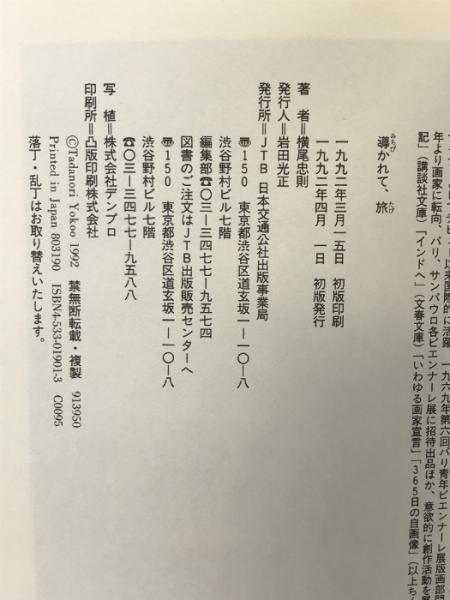 以来国際的に活躍。一九六九年第六回パリ青年ビエンナーレ展版画部門
年より画家に転向、パリ、サンパウロ各ビエンナーレ展に招待出品ほか、意欲的に創作活動を
記」（講談社文庫）「インドへ」（文春文庫）「いわゆる画家宣言」「365日の自画像」（以上ち
導かれて、旅
みちび
たび
一九九二年三月一五日　初版印刷
一九九二年四月　一日　初版発行
著　者＝横尾忠則
発行人＝岩田光正
発行所＝JTB 日本交通公社出版事業局
〠150　東京都渋谷区道玄坂一―一〇―八
渋谷野村ビル七階
編集部☎〇三―三四七七―九五七四
図書のご注文はJTB出版販売センターへ
〠150　東京都渋谷区道玄坂一―一〇―八
渋谷野村ビル七階
☎〇三―三四七七―九五八八
写　植＝株式会社デンプロ
印刷所＝凸版印刷株式会社
©Tadanori Yokoo 1992　禁無断転載・複製　913950
Printed in Japan 803190　ISBN4-533-01901-3　C0095
落丁・乱丁はお取り替えいたします。